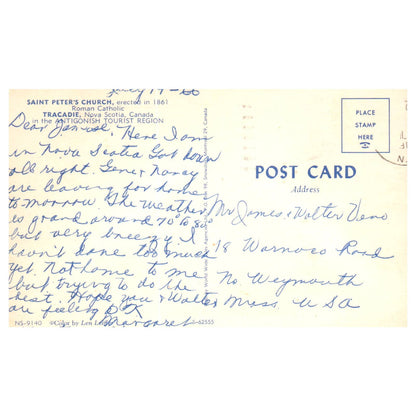 July 19-60
SAINT PETER'S CHURCH, erected in 1861
Roman Catholic
TRACADIE, Nova Scotia, Canada
in the ANTIGONISH TOURIST REGION
Dear Janise, Here I am
in Nova Scotia Got down
all right. Gene, Nancy
are leaving for home
to morrow. The weather
is grand around 70° to 80°
but very breezy. I
havn't done too much
yet. Not home to me
but trying to do the
best. Hope you & Walter
are feeling O K
Margaret
NS-9140 Color by Len
-62555
PLACE
STAMP
HERE
POST CARD
Address
Mr James & Walter Veno
18 Warnoco Road
No Weymouth
Mass. U S A